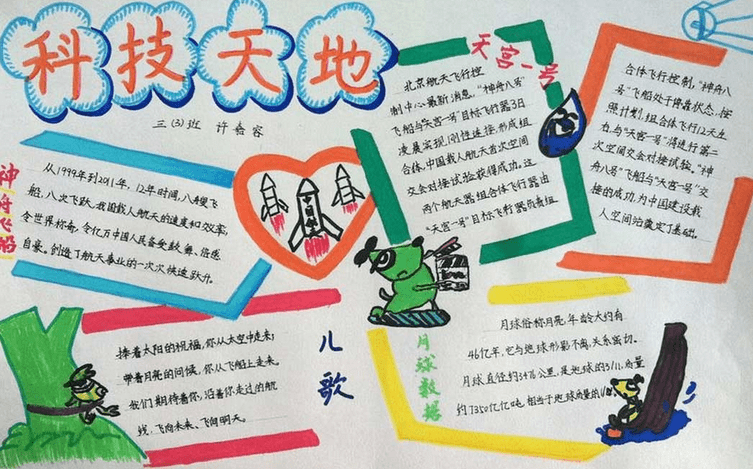 科技天地
三(3)班 许睿容
神舟飞船
从1999年到2011年，12年时间，八艘飞
船，八次飞跃，我国载人航天的速度和效率，
令世界称奇，令亿万中国人民备受鼓舞、倍感
自豪，创造了航天事业的一次次快速跃升。
天宫一号
北京航天飞行控
制中心最新消息，“神舟八号”
飞船与“天宫一号”目标飞行器3日
凌晨实现刚性连接，形成组
合体，中国载人航天首次空间
交会对接试验获得成功。这
两个航天器组合体飞行器由
“天宫一号”目标飞行器负责组
合体飞行控制，“神舟八
号”飞船处于停靠状态，按
照计划，组合体飞行12天左
右，与“天宫一号”将进行第二
次空间交会对接试验。“神
舟八号”飞船与“天宫一号”交
接的成功，为中国建设载
人空间站奠定了基础。
儿歌
捧着太阳的祝福，你从太空中走来；
带着月亮的问候，你从飞船上走来。
我们期待着你，沿着你走过的航
线，飞向未来、飞向明天。
月球数据
月球俗称月亮，年龄大约有
46亿年，它与地球形影不离，关系密切。
月球直径约3476公里，是地球的3/11，质量
约7350亿亿吨，相当于地球质量的1/